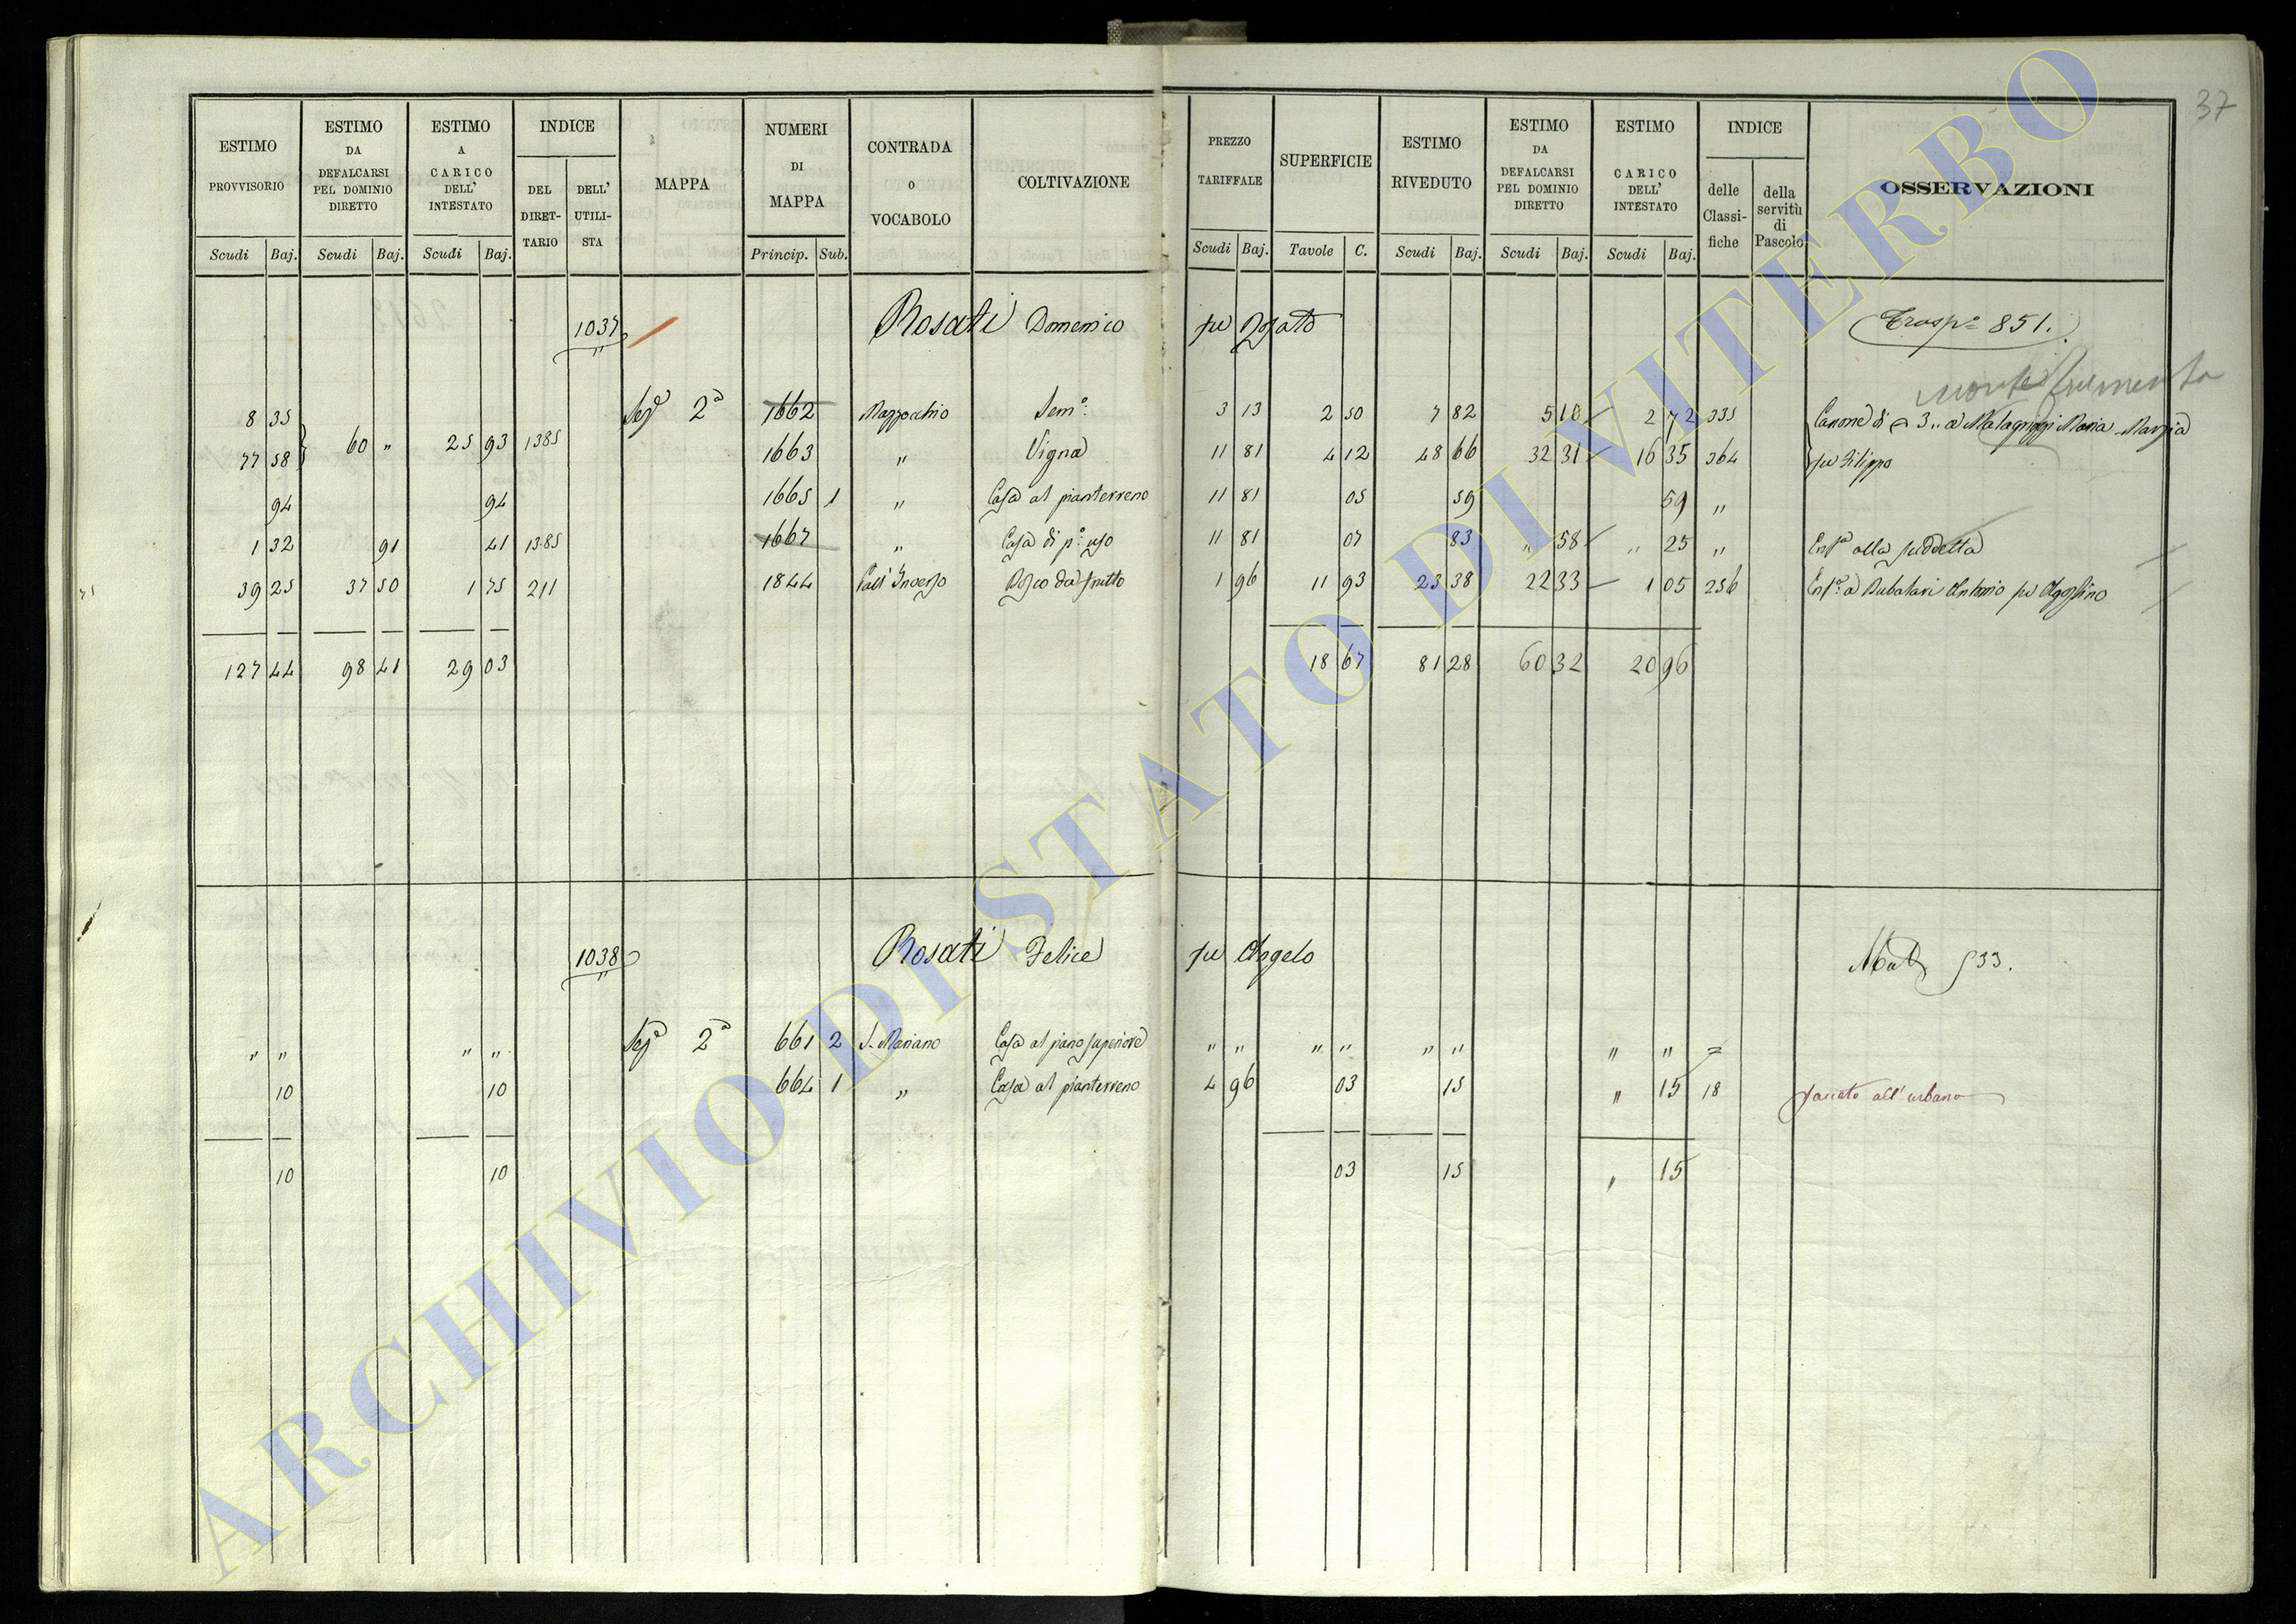 37
ESTIMO PROVVISORIO Scudi Baj.
ESTIMO DA DEFALCARSI PEL DOMINIO DIRETTO Scudi Baj.
ESTIMO A CARICO DELL' INTESTATO Scudi Baj.
INDICE DEL DIRETTARIO DELL' UTILISTA
MAPPA
NUMERI DI MAPPA Princip. Sub.
CONTRADA O VOCABOLO
COLTIVAZIONE
PREZZO TARIFFALE Scudi Baj.
SUPERFICIE Tavole C.
ESTIMO RIVEDUTO Scudi Baj.
ESTIMO DA DEFALCARSI PEL DOMINIO DIRETTO Scudi Baj.
ESTIMO CARICO DELL' INTESTATO Scudi Baj.
INDICE delle Classifiche della servitù di Pascolo
OSSERVAZIONI
1037 Rosati Domenico fu Traspo 851.
8 35 Seze 2a 1662 Mazzocchio Semo 3 13 2 50 7 82 5 10 2 72 335 Canone di 3 „ a Malagrippi Maria Marzia
77 58 60 „ 25 93 1385 1663 „ Vigna 11 81 4 12 48 66 32 31 16 35 364 fu Filippo
94 94 1665 1 „ Casa al pianterreno 11 81 05 59 59 „
1 32 91 41 1385 1667 „ Casa di po uso 11 81 07 83 „ 58 „ 25 „ Enfa alla suddetta
39 25 37 50 1 75 211 1844 Bosco da frutto 1 96 11 93 23 38 22 33 1 05 256 Enfa a Antonio fu Agostino
127 44 98 41 29 03 18 67 81 28 60 32 20 96
1038 Rosati Felice fu Angelo 533.
„ „ „ „ Sezе 2a 661 2 S. Mariano Casa al piano superiore „ „ „ „ „ „ „ „ =
10 10 664 1 „ Casa al pianterreno 4 96 03 15 „ 15 18 passato all'urbano
10 10 03 15 „ 15
ARCHIVIO DI STATO DI VITERBO